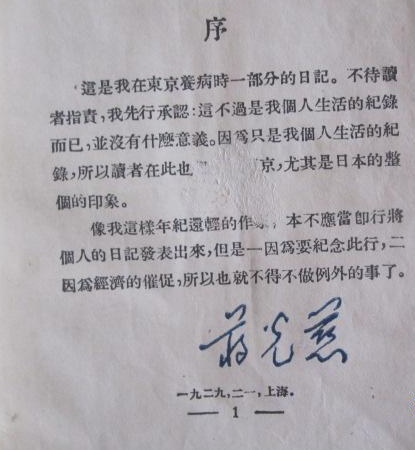 序
這是我在東京養病時一部分的日記。不待讀
者指責，我先行承認：這不過是我個人生活的紀錄
而已，並沒有什麼意義。因爲只是我個人生活的紀
錄，所以讀者在此也 京，尤其是日本的整
個的印象。
像我這樣年紀還輕的作家，本不應當卽行將
個人的日記發表出來，但是一因爲要紀念此行，二
因爲經濟的催促，所以也就不得不做例外的事了。
蔣光慈
一九二九，二一，上海。
1